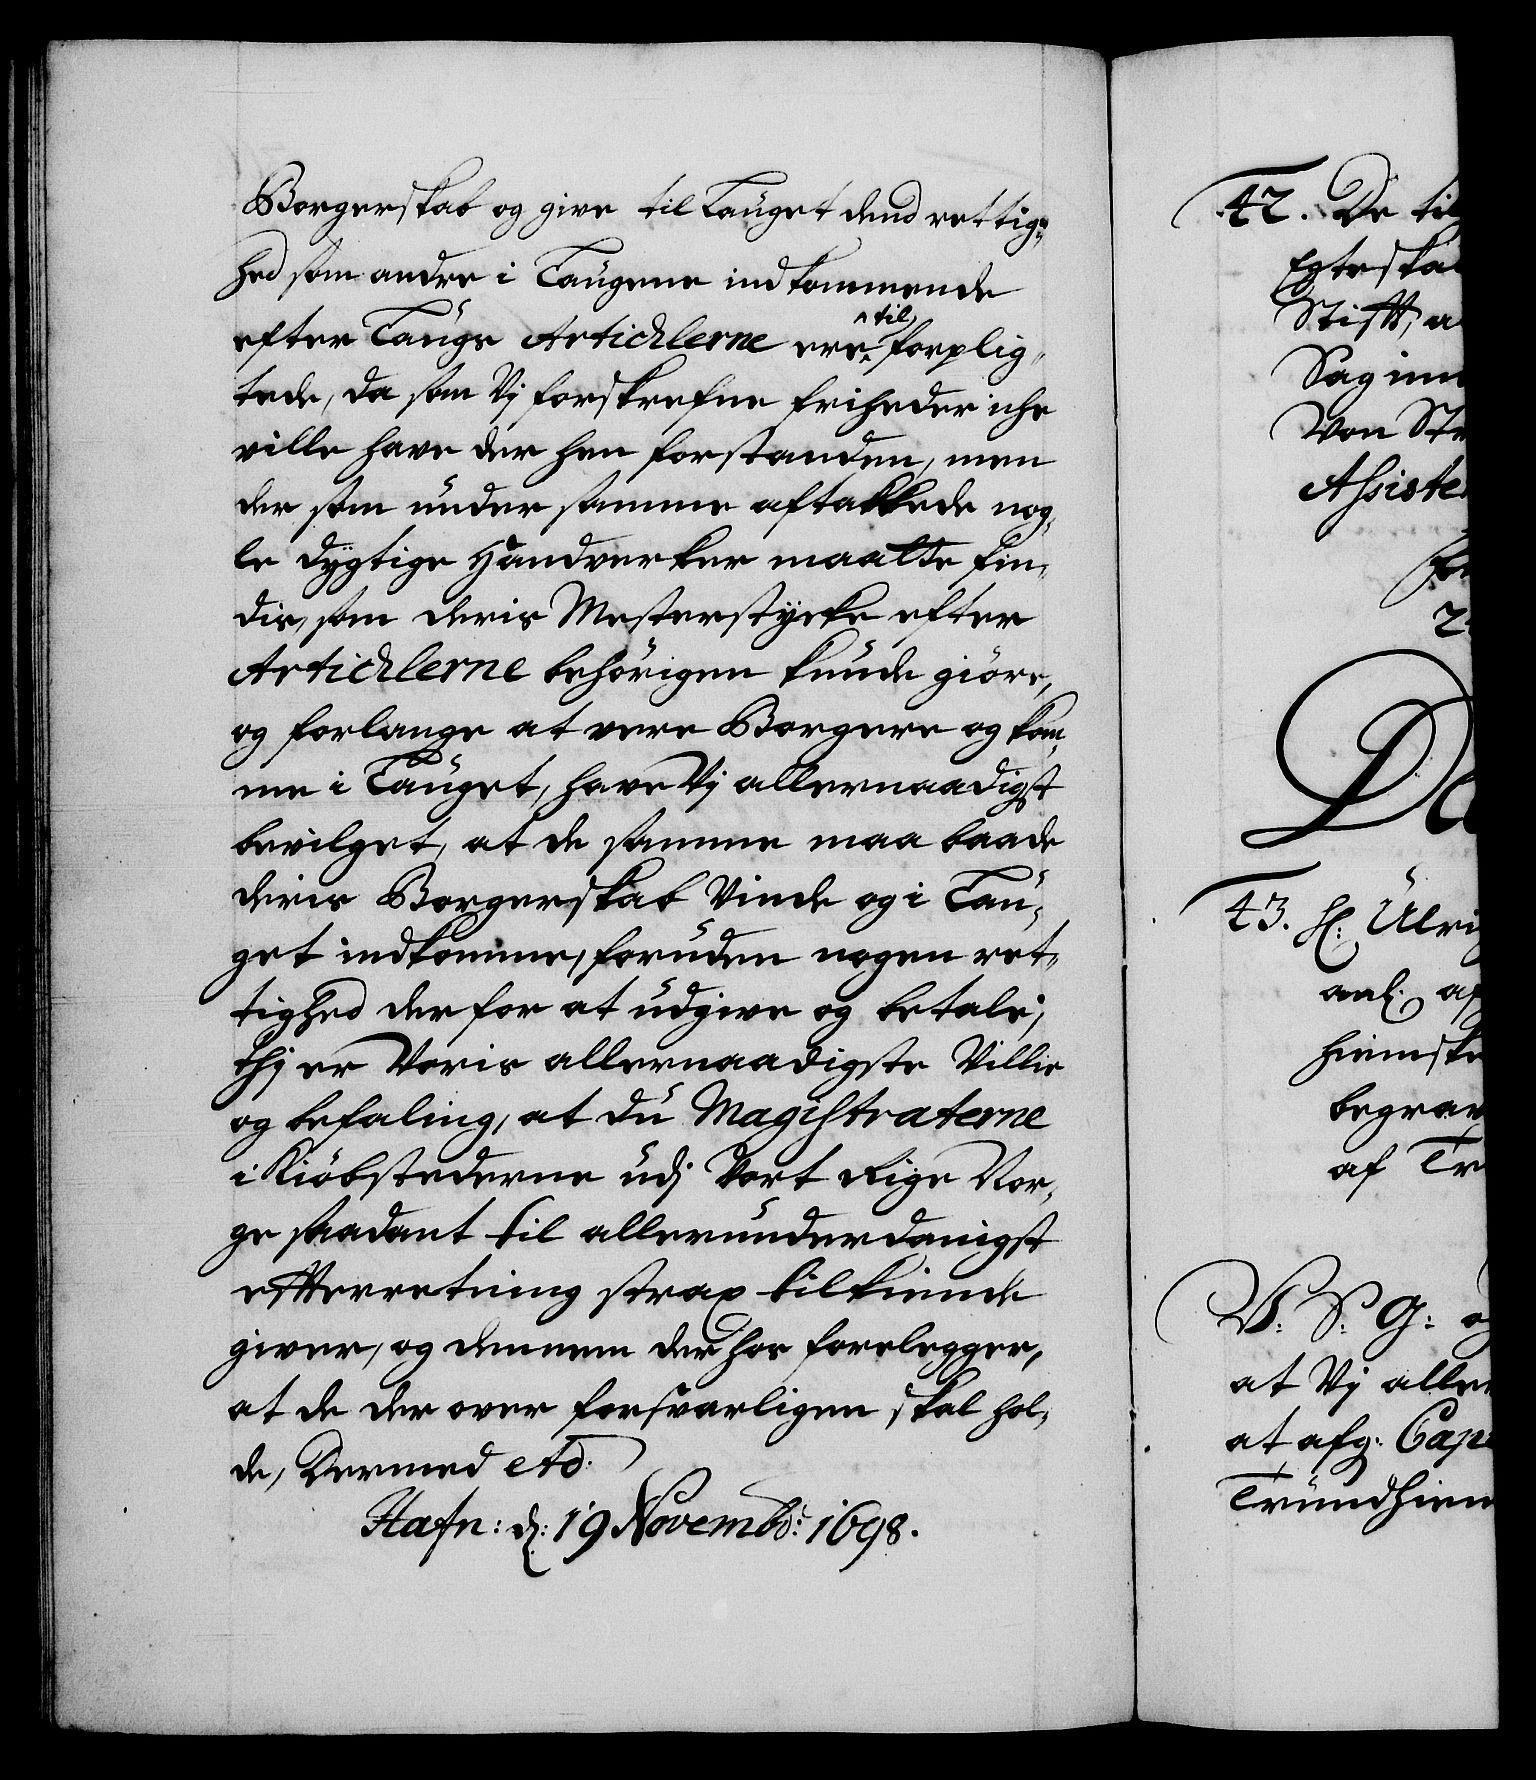 Borgerskab og give til Lauget dend rettig-
hed som andre i Laugene indkommende
efter Laugs Articklerne ere til forplig-
tede, da som Vj forskrefne friheder iche
ville have der hen forstanden, men
der som under samme aftakkede nog-
le dygtige Handverker maatte fin-
dis, som deris Mesterstycke efter
Articklerne behörigen kunde giöre,
og forlange at vere Borgere og kom-
me i Lauget, have Vj allernaadigst
bevilget, at de samme maa baade
deris Borgerskab Vinde og i Lau-
get indkomme, foruden nogen ret-
tighed derfor at udgive og betale;
Thj er Voris allernaadigste Villie
og befaling, at du Magistraterne
i Kiöbstederne udj Vort Rige Nor-
ge saadant til allerunderdanigst
efterretning strax tilkiende
giver, og dennem der hos forelegger,
at de der over forsvarligen skal hol-
de, Dermed etc.
Hafn: d: 19 Novembr: 1698.
42. De til
Egteska
Stift, a
Sag im
Von St
Assiste
2
De
43. H: Ulri
anl. af
hiemske
begrav
af Tr
V. S. G: o
at Vj aller
at afg: Cap
Trundhiem